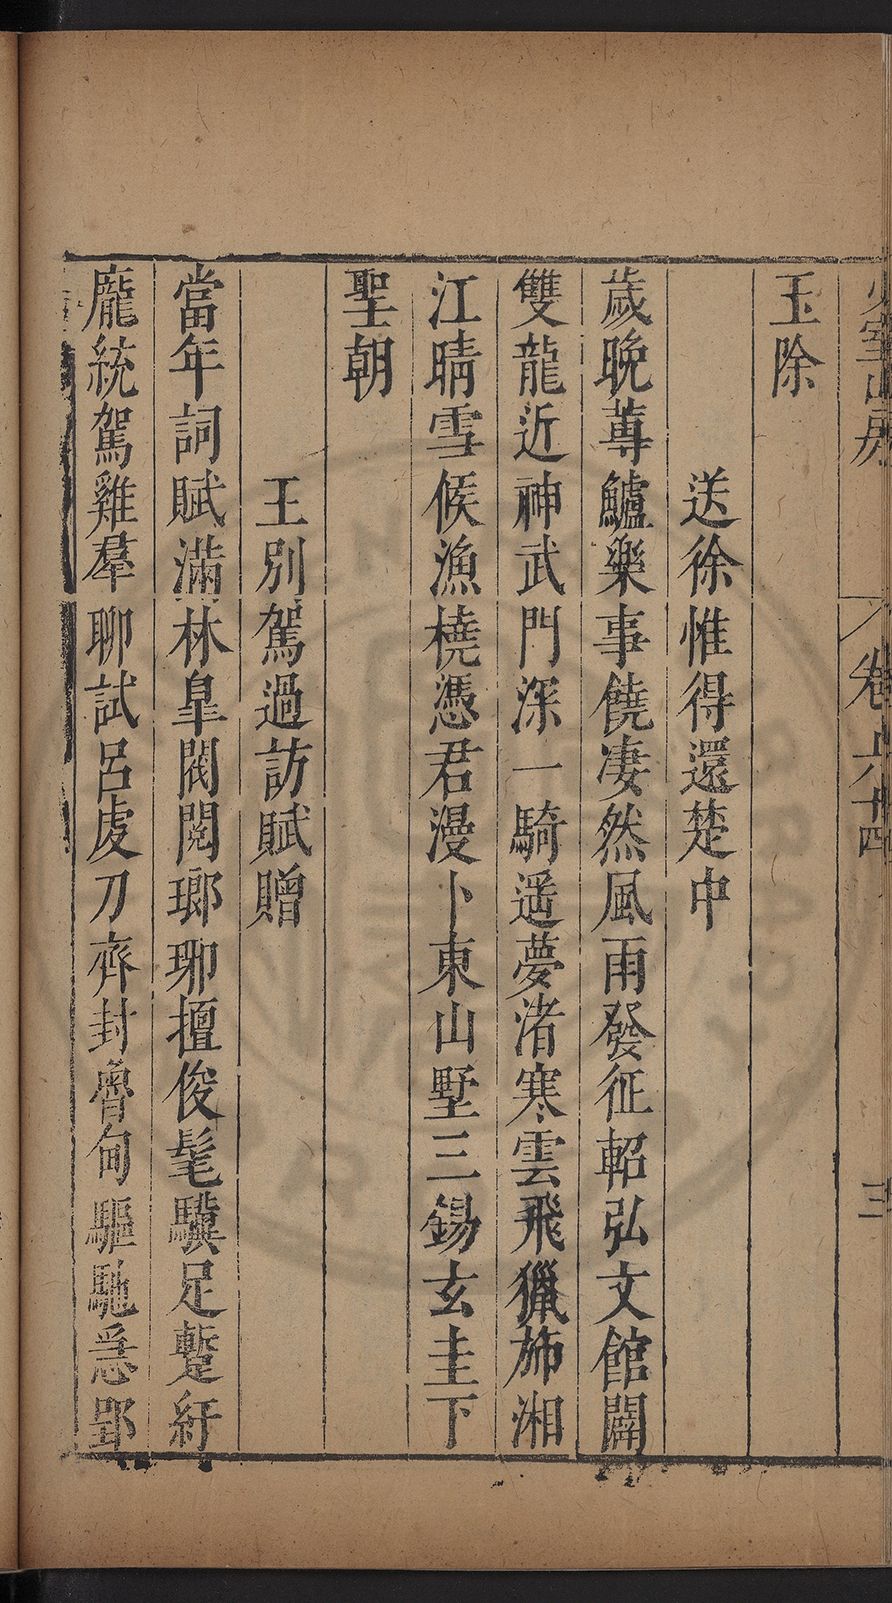 少室山房 卷六十四 三
玉除
送徐惟得還楚中
歲晚蓴鱸樂事饒凄然風雨發征軺弘文館闢
雙龍近神武門深一騎遥夢渚寒雲飛獵斾湘
江晴雪候漁橈憑君漫卜東山墅三錫玄圭下
聖朝
王別駕過訪賦贈
當年詞賦滿林臯閥閱瑯琊擅俊髦驥足蹔紆
龐統駕雞羣聊試呂虔刀齊封魯甸驅馳急郢